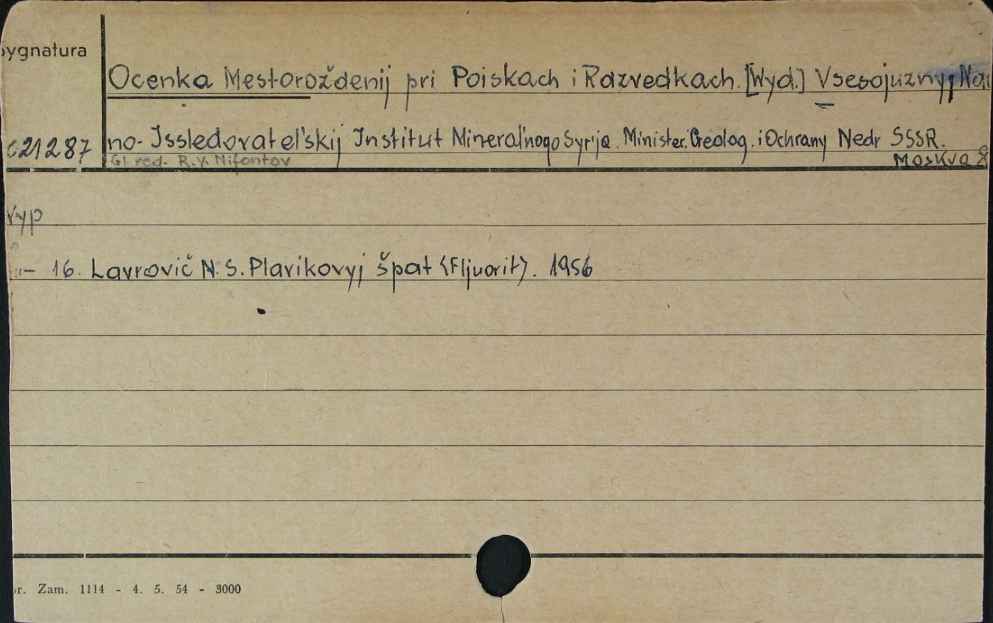 ygnatura
Ocenka Mestoroždenij pri Poiskach i Razvedkach. [Wyd.] Vsesojuznyj Nau
c21287 no-Issledovatel'skij Institut Mineral'nogo Syr'ja. Minister. Geolog. i Ochrany Nedr SSSR.
Gl. red. R.V. Nifontov Moskva 8
Vyp
– 16. Lavrovič N.S. Plavikovyj špat <Fljuorit>. 1956
r. Zam. 1114 - 4. 5. 54 - 3000